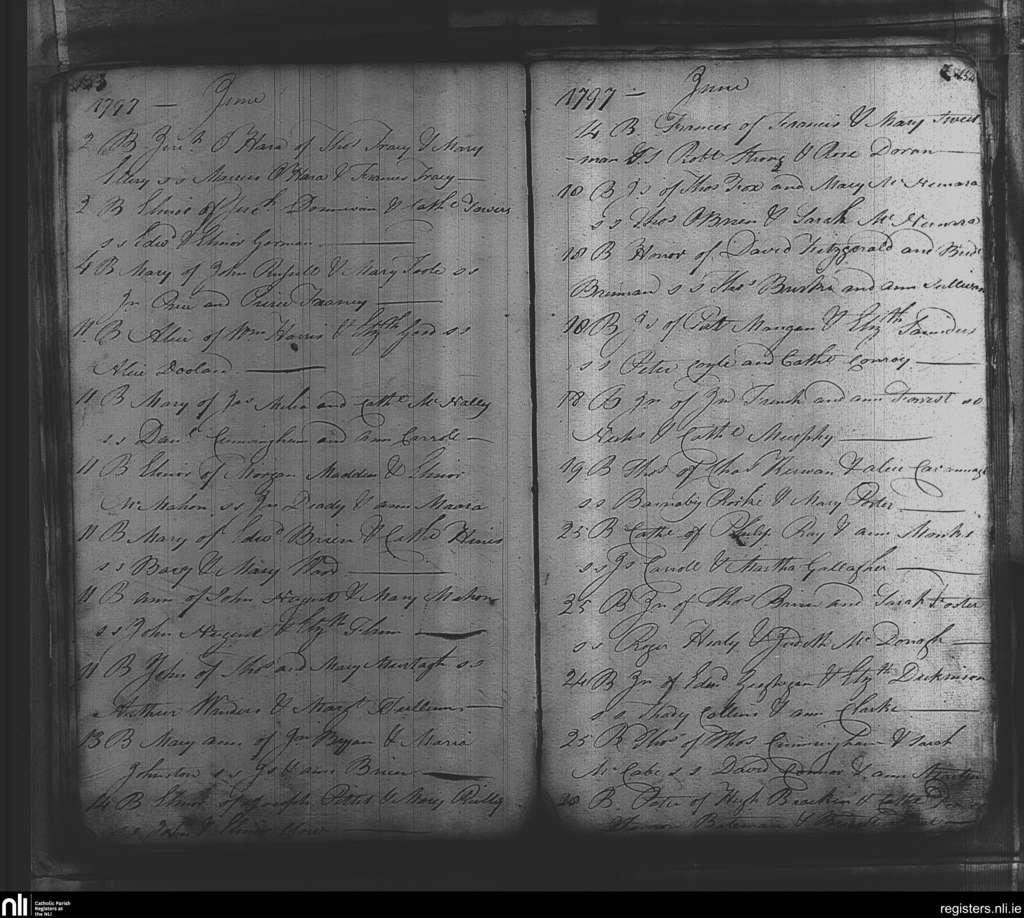 1797 — June
2 B Jere.h O'Hara of Thos Tracy & Mary
s s Marcus O'Hara & Frances Tracy —
2 B Elinor of Jere.h Donnivan & Cath.e Towers
s s Edw.d & Elinor Gorman
4 B Mary of John Russell & Mary Toole s s
Jn Price and Pierce
11 B Alice of Wm Harris & Elizth s s
Alice Doolan
11 B Mary of Jas Melia and Cath.e McNally
s s Danl Cunningham and Ann Carroll —
11 B Elinor of Morgan Madden & Elinor
McMahon s s Jn Deady & Ann Meara
11 B Mary of Edwd Brien & Cath.e
s s & Mary Ward
11 B Ann of John Nugent & Mary Mahon
s s John Nugent & Elizth
11 B John of Thos and Mary Murtagh s s
Arthur & Margt
13 B Mary Ann of Jn Bryan & Maria
Johnston s s Js & Ann Brien
14 B Elinor of Joseph & Mary Reilly
s s John & Elinor
1797 — June
14 B Frances of Francis & Mary Sweet
-man s s Robt Strong & Rose Doran
18 B Js of Thos Fox and Mary McNemara
s s Thos OBrien & Sarah McNemara
18 B Honor of David Fitzgerald and Brid
Brennan s s Thos and Ann Sullivan
18 B Js of Patt Mangan & Elizth Saunders
s s Peter Coyle and Cath.e Conroy
18 B Jn of Jn French and Ann Forrest s s
Nichs & Cath.e Murphy
19 B Thos of Thos Kerwan & Alice Cavannagh
s s Barnaby Rorke & Mary
25 B Cath.e of Philip Ray & Ann Monks
s s Js Carroll & Martha Gallagher
25 B Jn of Thos Brien and Sarah Foster
s s Roger Healy & Judith McDonagh
24 B Jn of Edwd Geoghegan & Elizth Dickinson
s s Thady Collins & Ann Clarke
25 B Thos of Thos Cunningham & Sarah
McCabe s s David Connor & Ann
28 B Peter of Hugh Bracken & Cathe
Bateman &
nli
Catholic Parish
Registers at
the NLI
registers.nli.ie